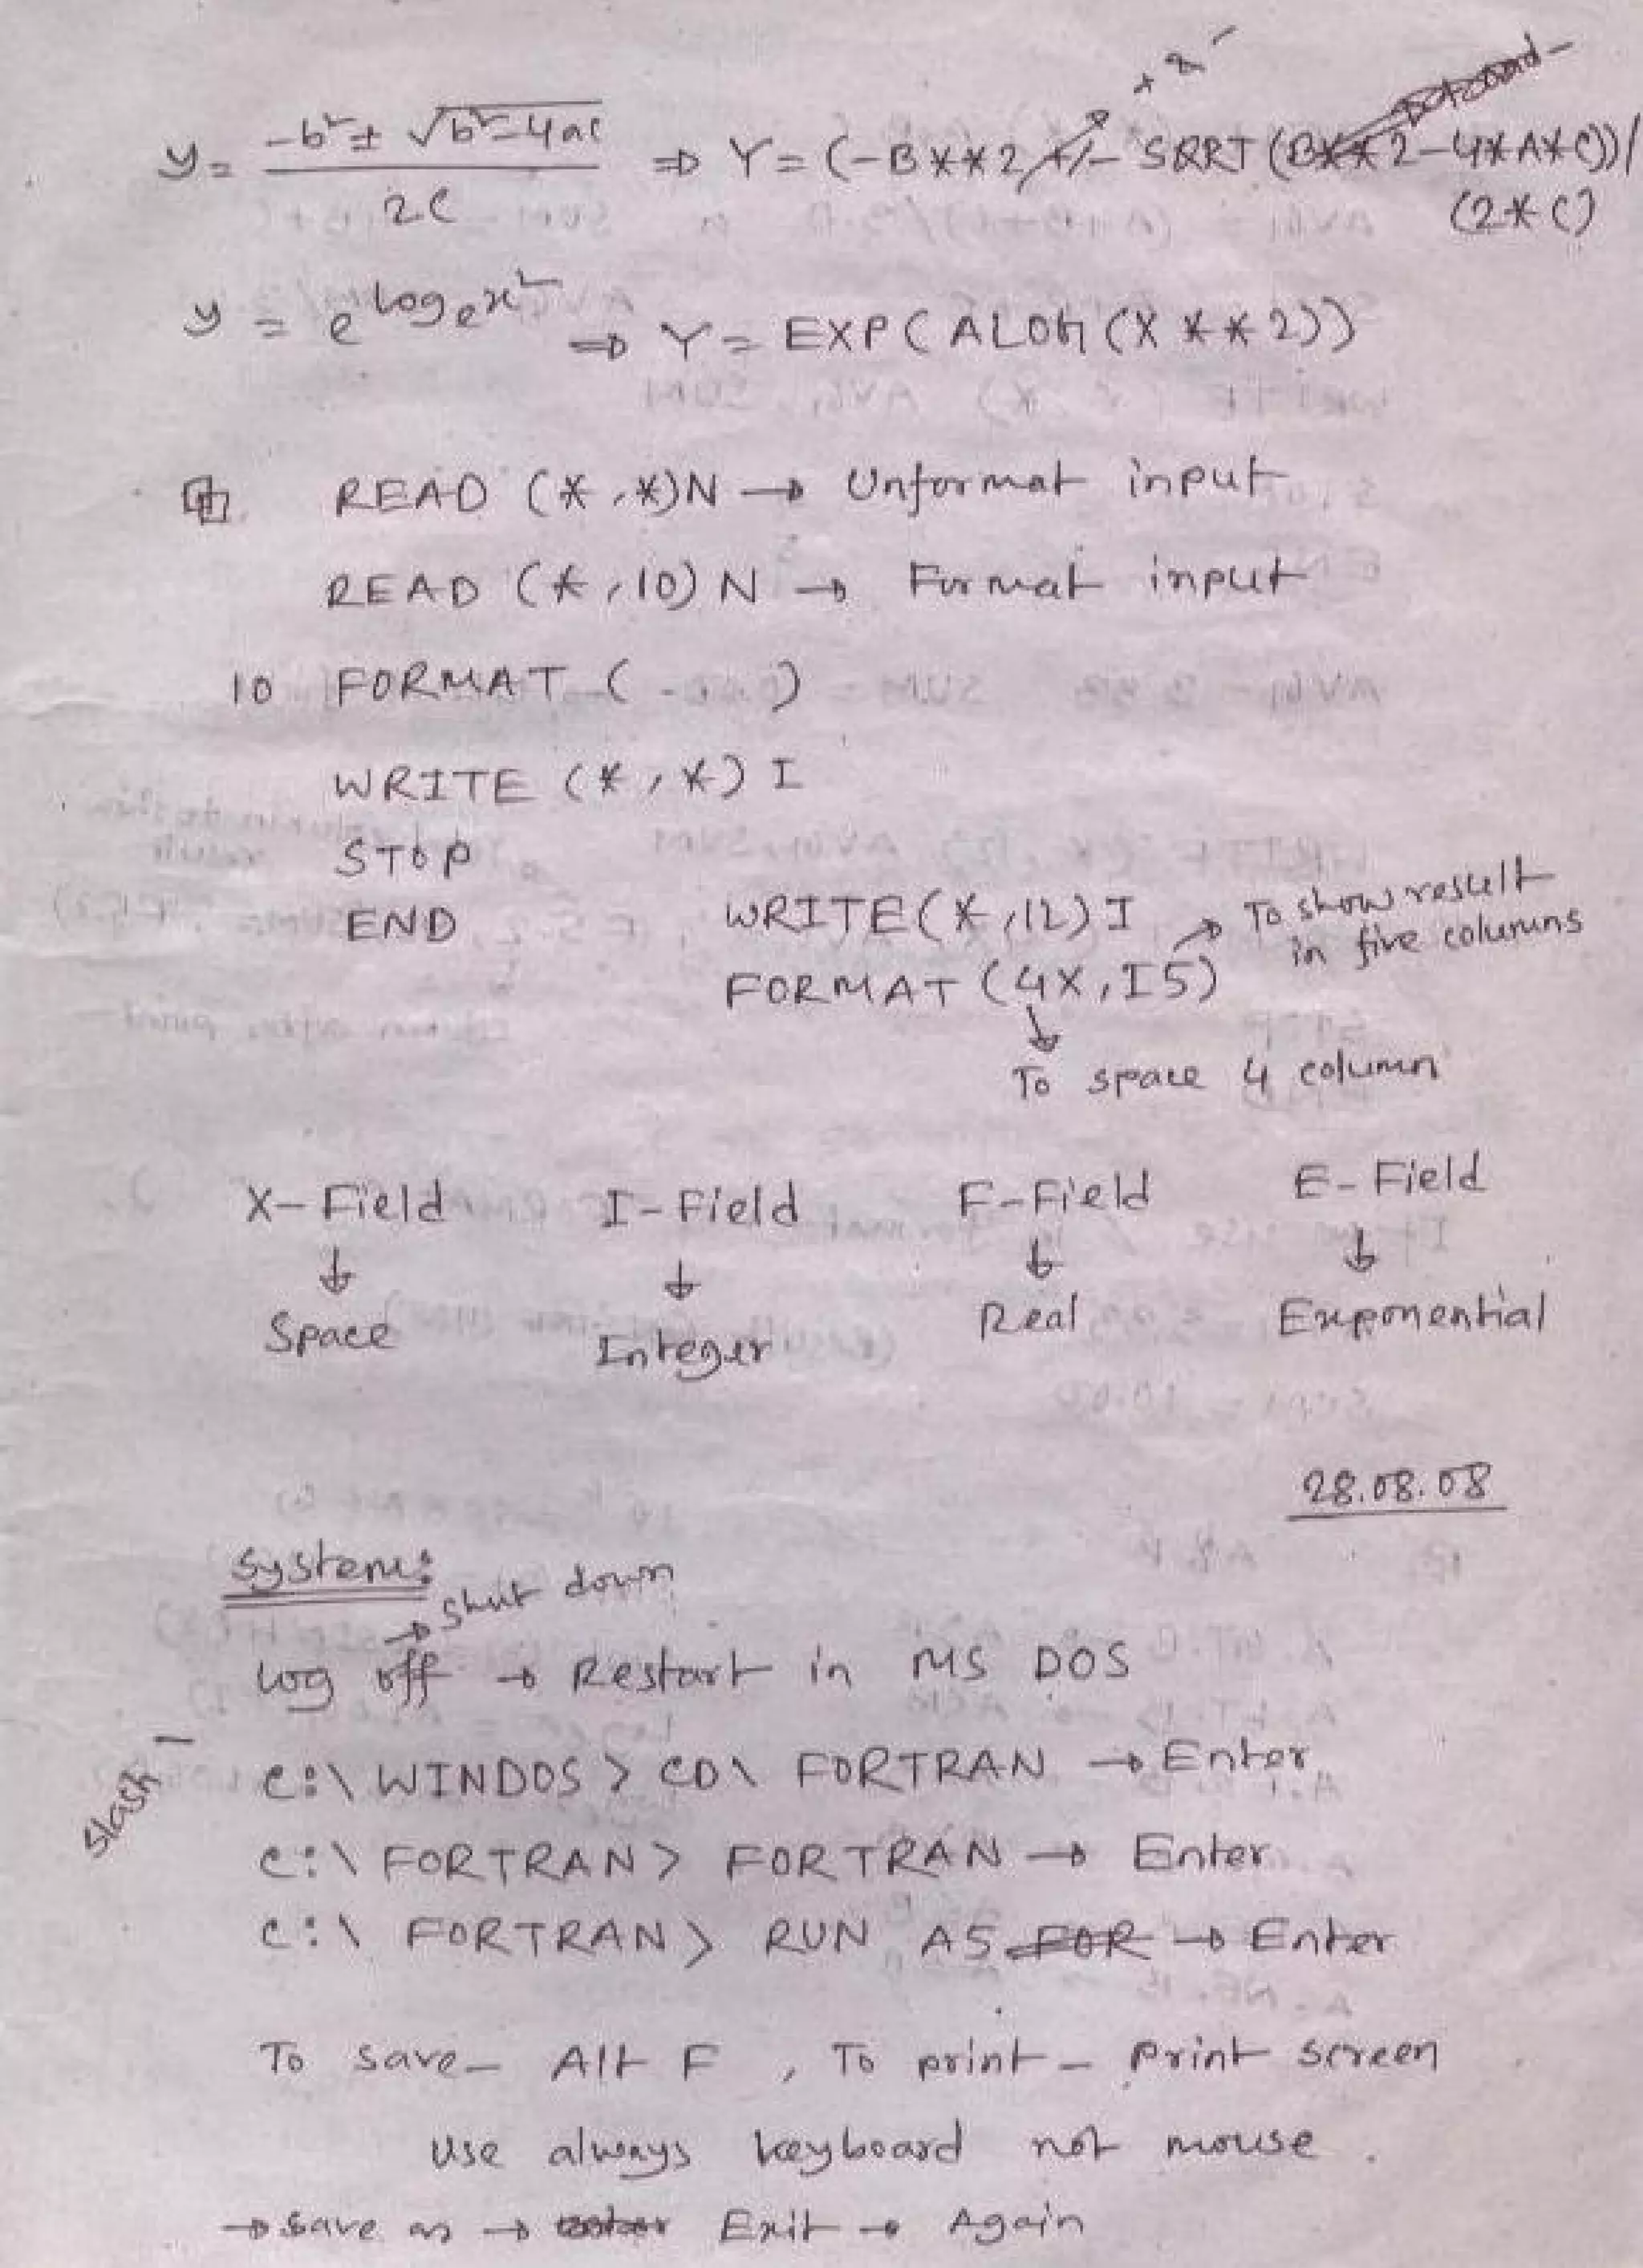 y = -b² ± √b²-4ac / 2c ⇒ Y = (-B**2 +/- SQRT (B**2-4*A*C))/
(2*C)
y = e^log_e x² ⇒ Y = EXP(ALOG(X**2))
READ (*,*)N → Unformat input
READ (*,10) N → Format input
10 FORMAT ( - )
WRITE (*,*) I
STOP
END
WRITE(*,12) I → To show result
in five columns
FORMAT (4X,I5)
↓
To space 4 column
X-Field I-Field F-Field E-Field
↓ ↓ ↓ ↓
Space Integer Real Exponential
28.08.08
System:
→ Shut down
Log off → Restart in MS DOS
Slash \
C:\WINDOS > CD\ FORTRAN → Enter
C:\ FORTRAN> FORTRAN → Enter
C:\ FORTRAN> RUN A5 FOR → Enter
To save - Alt F , To print - print screen
Use always keyboard not mouse.
→ Save as → enter Exit → Again